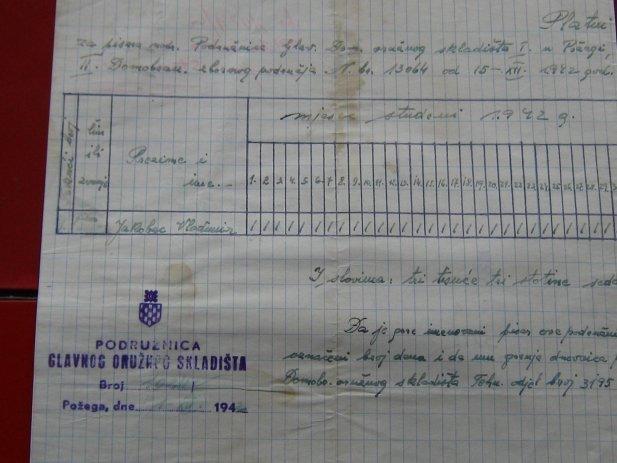 Platni
za pisara kod. Podružnice Glav. Dom. oružnog skladišta I. u Požegi,
II. Domobran. zbornog područja N. br. 13064 od 15-XII. 1942 god.
mjesec studeni 1942 g.
čin
ili
zvanje
Prezime i
ime.-
1. 2 3. 4. 5. 6. 7 8. 9. 10. 11. 12. 13. 14. 15. 16. 17. 18. 19. 20. 21. 22. 23. 24. 25. 26. 27. 28.
Jakobac Vladimir / / / / / / / / / / / / / / / / / / / / / / / / / / / /
I slovima: tri tisuće tri stotine sede
Da je gore imenovani pisar ove područni
označeni broj dana i da mu gornja dnevnica
Domobr. oružnog skladišta Tehn. odjel broj 3195
PODRUŽNICA
GLAVNOG ORUŽNOG SKLADIŠTA
Broj
Požega, dne 194